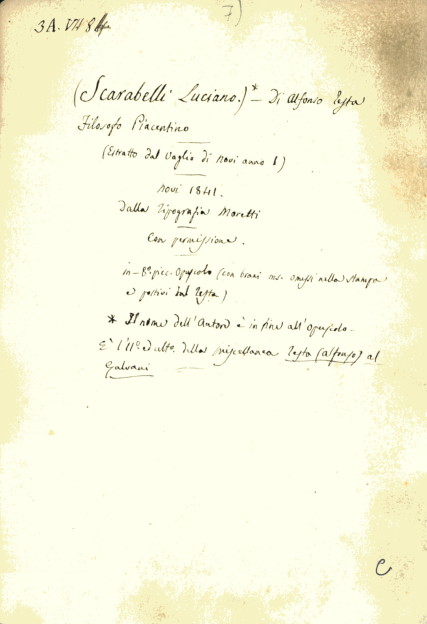 7)
3A. VII 8
(Scarabelli Luciano.)* — Di Alfonso Testa
Filosofo Piacentino
(Estratto dal Vaglio di Novi anno 8)
Novi 1841.
Dalla Tipografia Moretti
Con permissione.
in-8º picc. Opuscolo (con brani ms. omessi nella stampa
e postivi dal Testa)
* Il nome dell'Autore è in fine all'opuscolo.
È l'11º ed ultº. della miscellanea Testa (Alfonso) al
Galvani
C